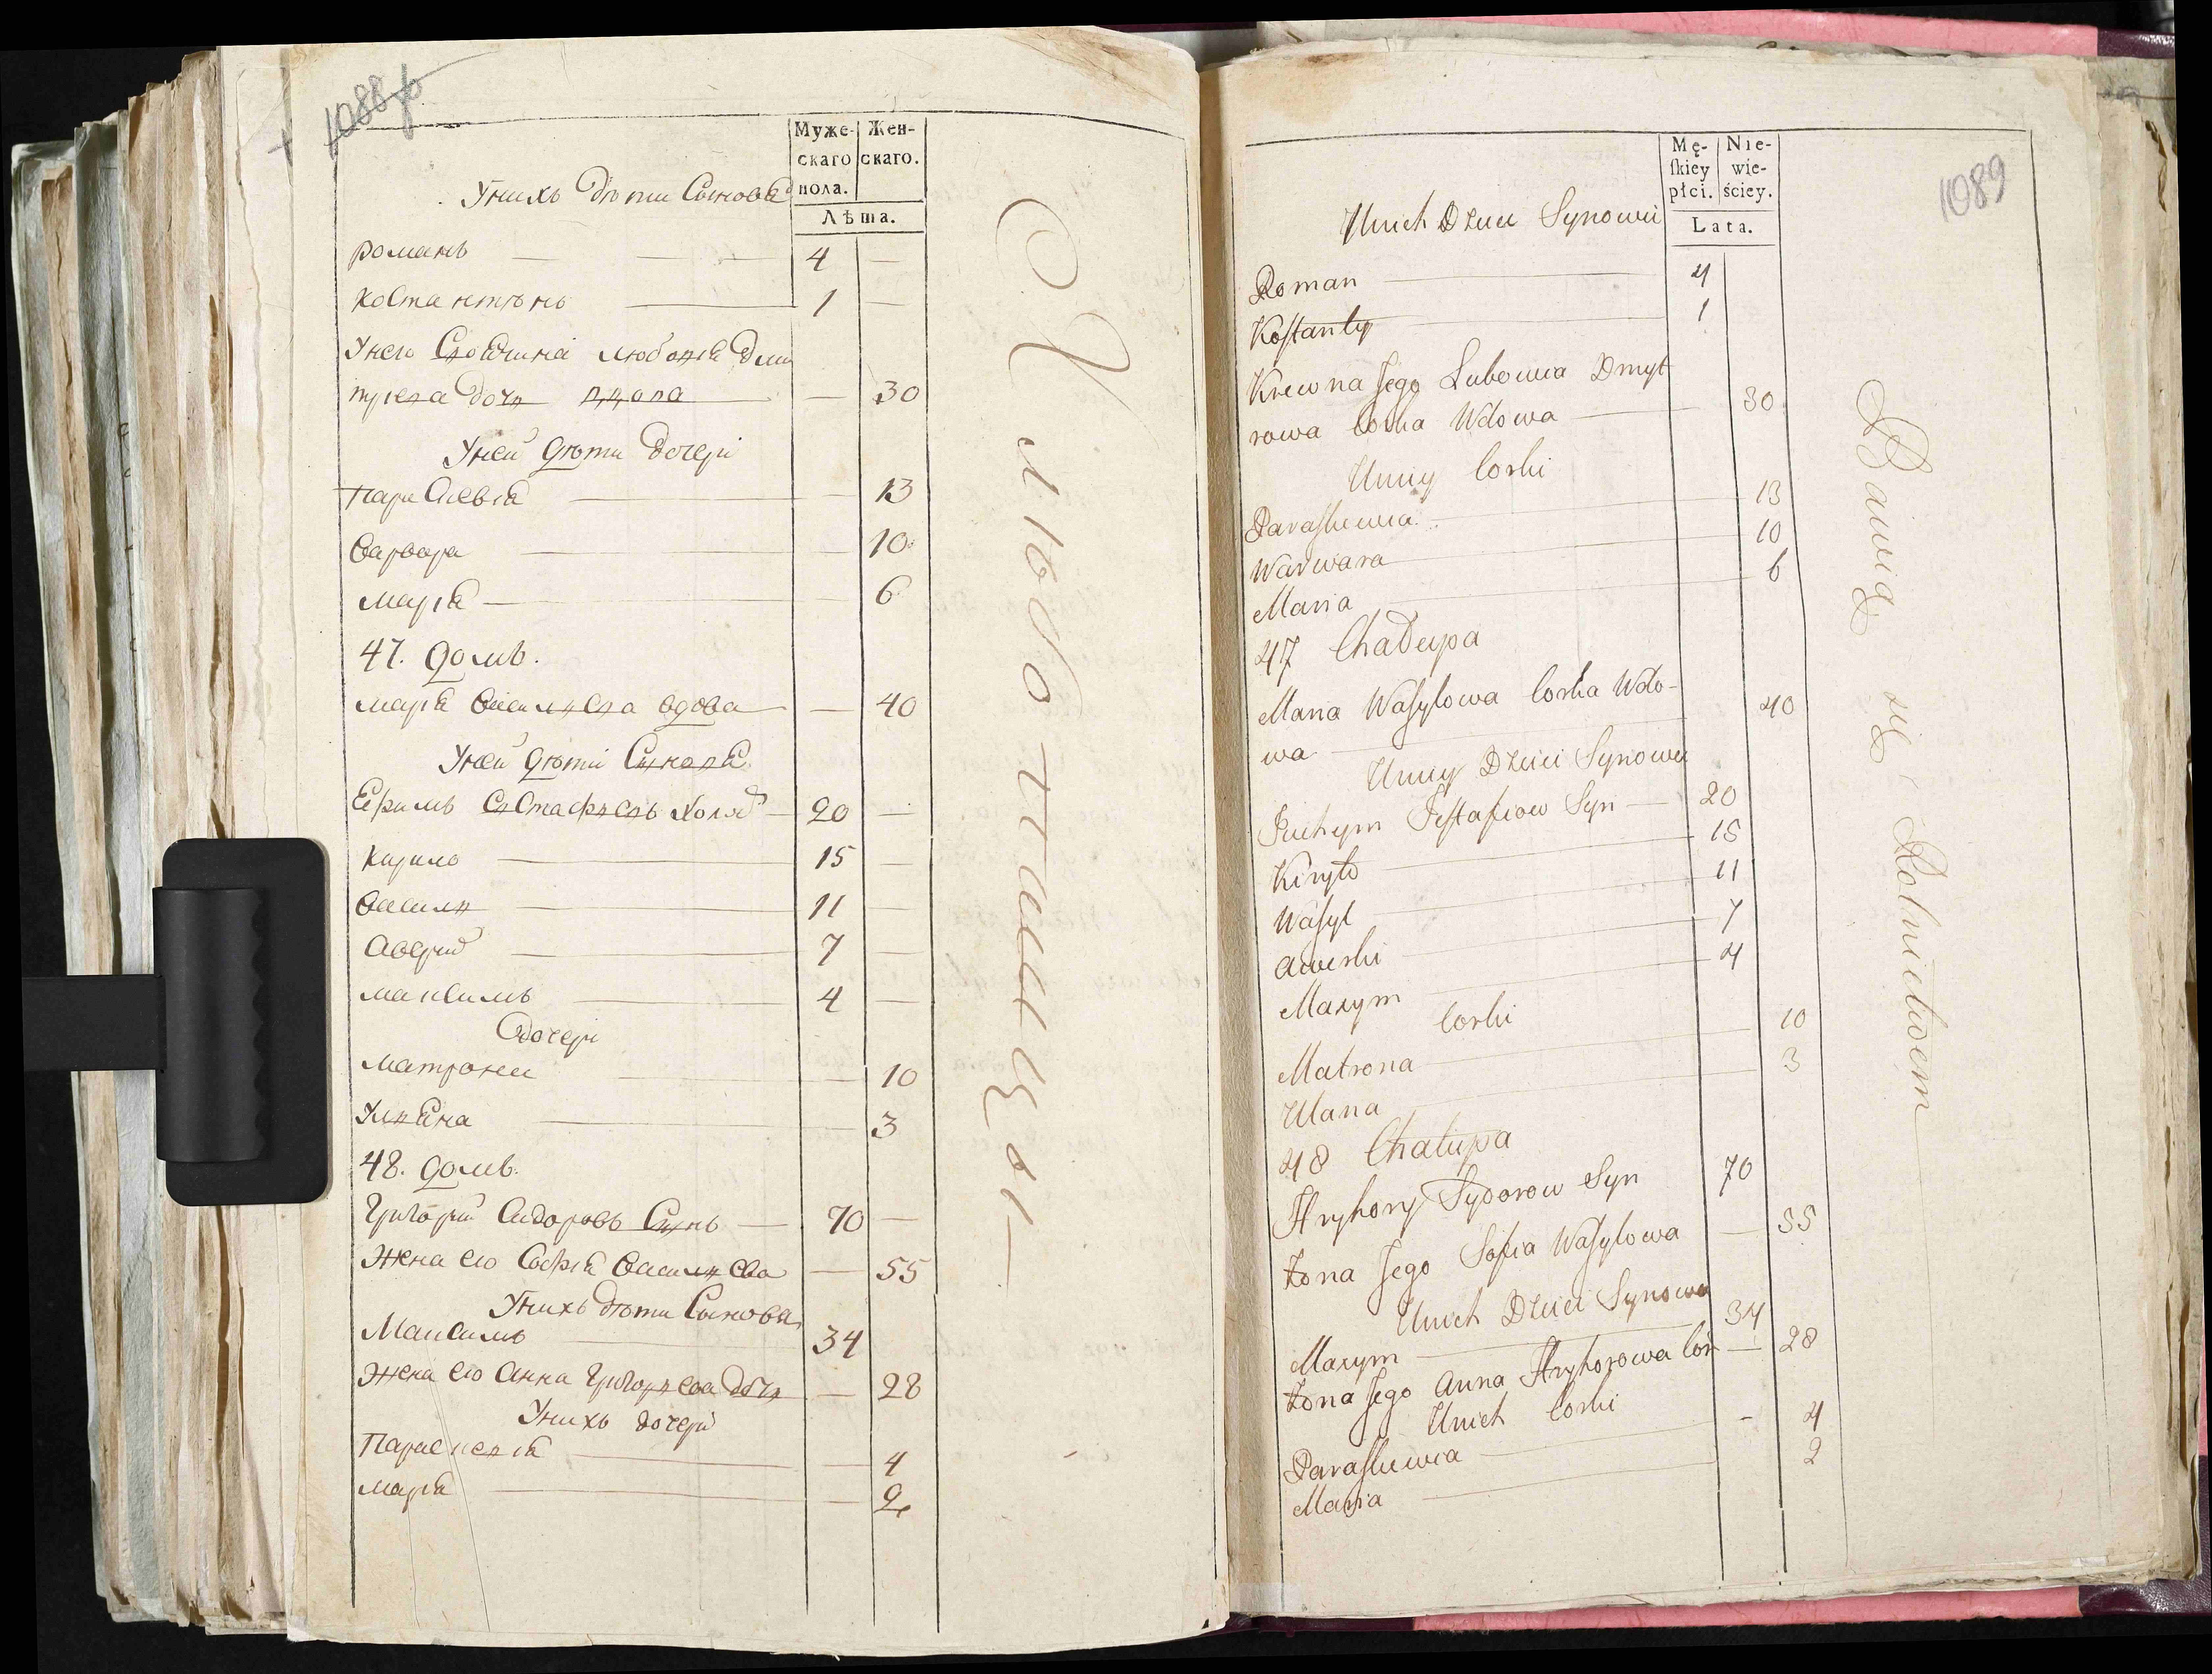 1088
Муже-
скаго
пола.
Жен-
скаго.
Лѣта.
Унихъ дѣти Сыновя
Романъ 4 —
Костантѣнъ 1 —
Унего Своячина Любовія Дми
триева дочь вдова — 30
Уней дѣти дочери
Параскевія — 13
Варвара — 10
Марія — 6
47. домъ.
Марія Василева вдова — 40
Уней дѣти Синовя
Ефимъ Евстафиевъ холяс 20 —
Кирило 15 —
Василь 11 —
Аверий 7 —
Максимъ 4 —
Дочери
Матрона — 10
Уляна — 3
48. домъ.
Григорий Сидоровъ Синъ — 70 —
Жена его Софія Василева — 55
Унихъ дѣти Сынова
Максимъ 34
Жена его Анна Григорьева дочь — 28
Унихъ дочери
Параскевія — 4
Марія — 2
Хлибопашцы
1089
Mę-
skiey
płci.
Nie-
wie-
ściey.
Lata.
Unich Dzieci Synowie
Roman 4
Kostanty 1
Krewna Jego Lubowia Dmyt
rowa Corka Wdowa 30
Uniey Corki
Paraskiewia 13
Warwara 10
Maria 6
47 Chałupa
Maria Wasylowa Corka Wdo-
wa 40
Uniey Dzieci Synowie
Juchym Jestafiow Syn 20
Kiryło 15
Wasyl 11
Awerki 7
Maxym 4
Corki
Matrona 10
Ulana 3
48 Chałupa
Hryhory Sydorow Syn 70
Żona Jego Sofia Wasylowa — 55
Unich Dzieci Synowie
Maxym 34
Żona Jego Anna Hryhorowa Cor — 28
Unich Corki
Paraskiewia - 4
Maria 2
Bawią się Rolnictwem